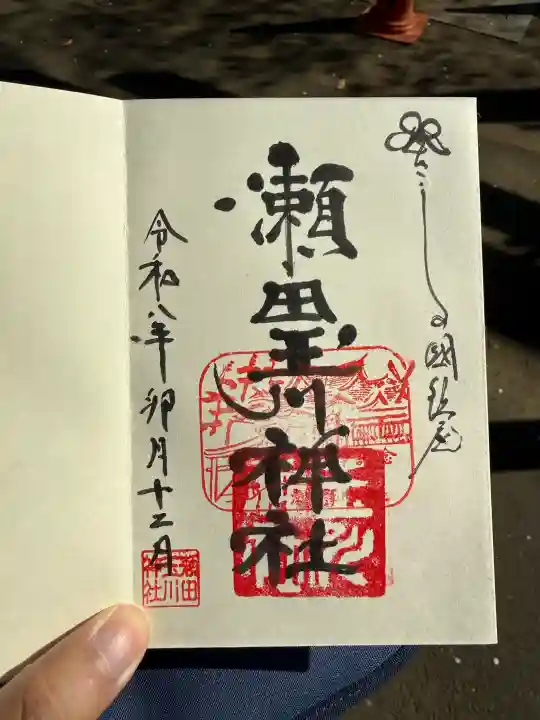 むさしの國
瀬田玉川神社
令和八年卯月十二日
瀬田
玉川
神社